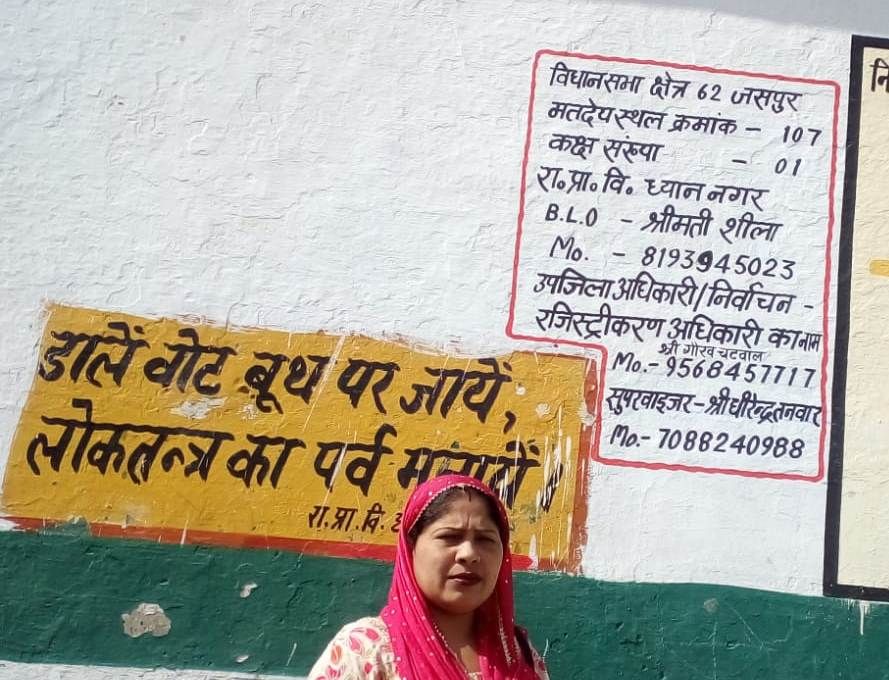 डालें वोट बूथ पर जायें,
लोकतन्त्र का पर्व
रा.प्रा.वि.
विधानसभा क्षेत्र 62 जसपुर
मतदेय स्थल क्रमांक - 107
कक्ष संख्या - 01
रा.प्रा.वि. ध्यान नगर
B.L.O - श्रीमती शीला
Mo. - 8193945023
उपजिला अधिकारी/निर्वाचन -
रजिस्ट्रीकरण अधिकारी का नाम
श्री गौरव चटवाल
Mo.- 9568457717
सुपरवाइजर-श्री धीरेन्द्र तनवार
Mo.- 7088240988
नि